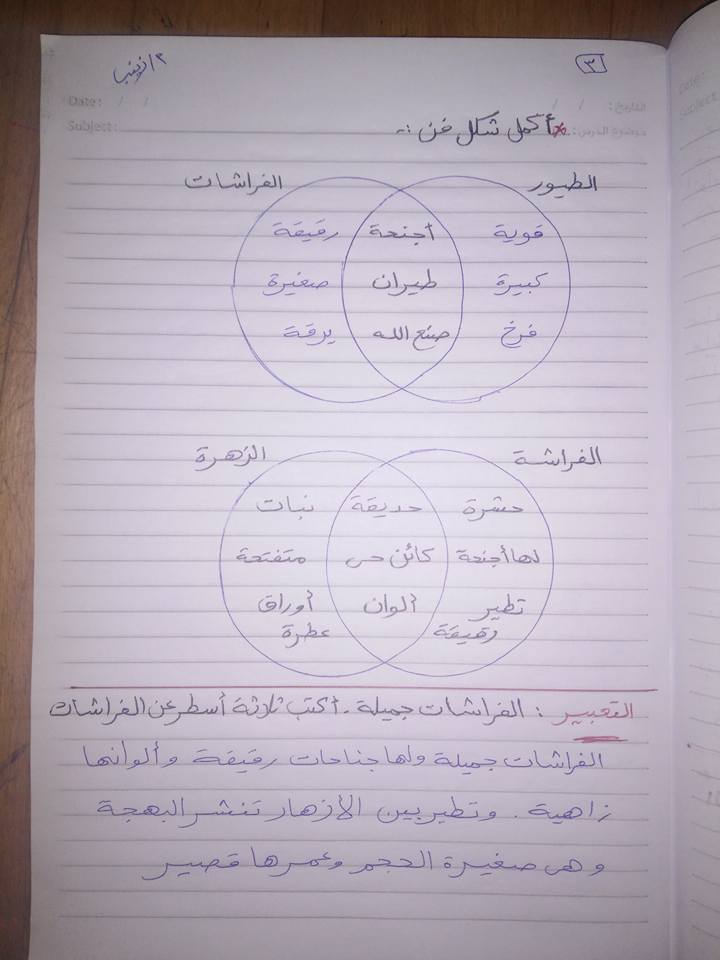 ٣
Date: / /
التاريخ: / /
Subject:
موضوع الدرس:
أكمل شكل فن :-
الطيور
الفراشات
قوية
أجنحة
رقيقة
كبيرة
طيران
صغيرة
فرخ
صنع الله
يرقة
الفراشة
الزهرة
حشرة
حديقة
نبات
لها أجنحة
كائن حى
متفتحة
تطير
ألوان
أوراق
رقيقة
عطرة
التعبير : الفراشات جميلة . أكتب ثلاثة أسطر عن الفراشات
الفراشات جميلة ولها جناحات رقيقة وألوانها
زاهية . وتطير بين الأزهار تنشر البهجة
وهى صغيرة الحجم وعمرها قصير